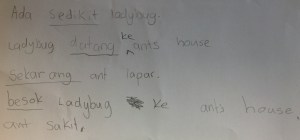 Ada sedikit ladybug.
Ladybug datang ke ants house
Sekarang ant lapar.
besok Ladybug ke ants house,
ant sakit.